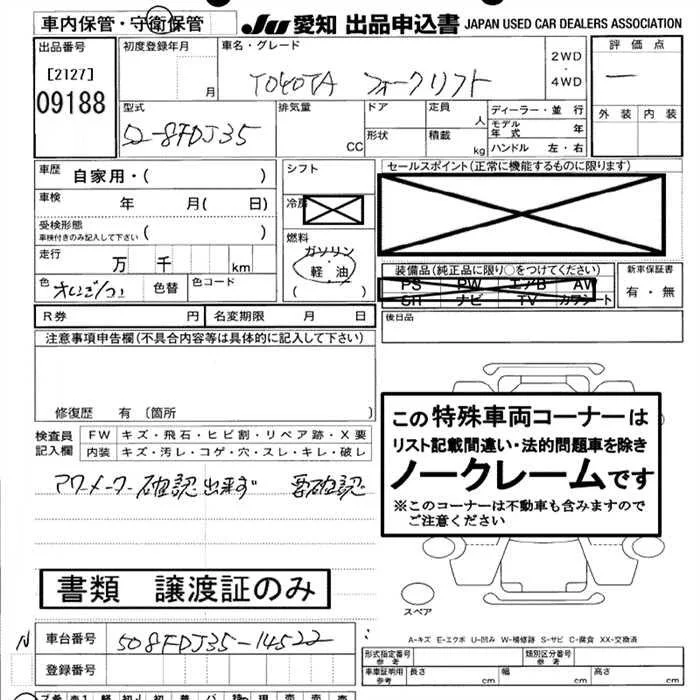 車内保管・守衛保管
JU 愛知 出品申込書 JAPAN USED CAR DEALERS ASSOCIATION
出品番号
[2127]
09188
初度登録年月
月
車名・グレード
TOYOTA フォークリフト
2WD
・
4WD
評価点
一
外装 内装
型式
排気量
CC
ドア
形状
定員
人
積載
kg
ディーラー・並 行
モデル年式 年
ハンドル 左・右
車歴 自家用・( )
車検 年 月( 日)
受検形態
車検付きのみ記入して下さい ( )
走行 万 千 km
色 オレンジ/コン 色替 色コード
シフト
冷房
燃料
ガソリン
軽・油
( )
セールスポイント(正常に機能するものに限ります)
装備品(純品に限り○をつけてください)
PS PW エアB AW
SR ナビ TV カワシート
新車保証書
有・無
R券 円 名変期限 月 日
後日品
注意事項申告欄(不具合内容等は具体的に記入して下さい)
修復歴 有 〔箇所 〕
検査員記入欄
FW キズ・飛石・ヒビ割・リペア跡・X要
内装 キズ・汚レ・コゲ・穴・スレ・キレ・破レ
アワメーター確認出来ず 要確認
この特殊車両コーナーは
リスト記載間違い・法的問題車を除き
ノークレームです
※このコーナーは不動車も含みますので
ご注意ください
書類 譲渡証のみ
スペア
A-キズ E-エクボ U-凹み W-補修跡 S-サビ C-腐食 XX-交換済
N 車台番号 508FDJ35-14522
登録番号
形式指定番号
参考
類別区分番号
参考
車庫証明用
参考
長さ cm 幅 cm 高さ cm